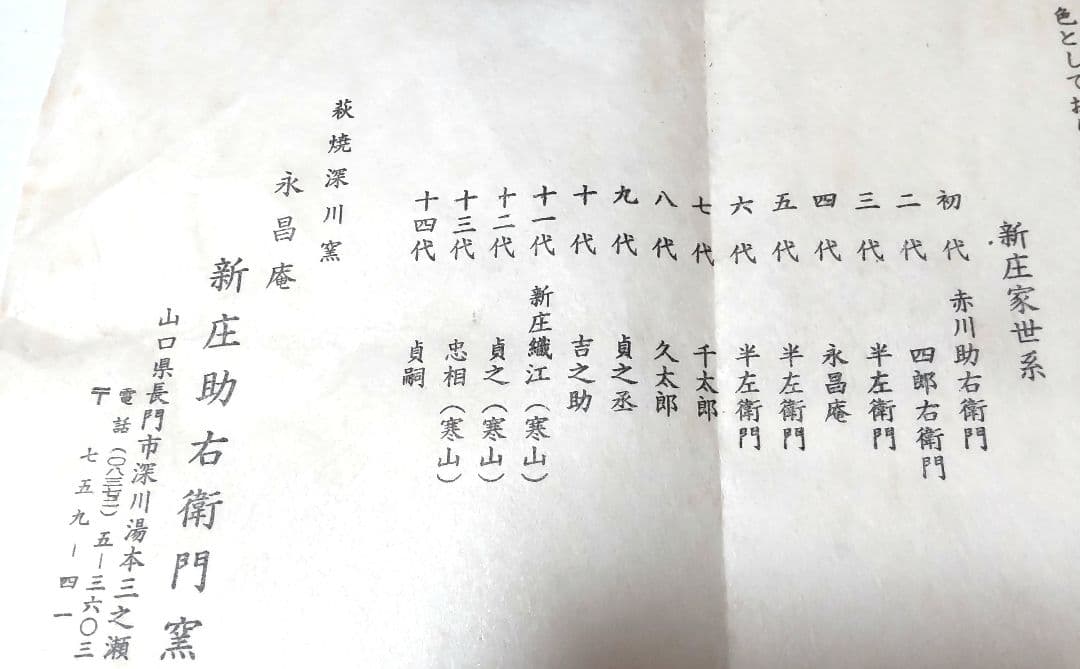 色としてお
新庄家世系
初代 赤川助右衛門
二代 四郎右衛門
三代 半左衛門
四代 永昌庵
五代 半左衛門
六代 半左衛門
七代 千太郎
八代 久太郎
九代 貞之丞
十代 吉之助
十一代 新庄織江(寒山)
十二代 貞之(寒山)
十三代 忠相(寒山)
十四代 貞嗣
萩焼深川窯
永昌庵
新庄助右衛門窯
山口県長門市深川湯本三之瀬
電話(〇八三七二)五-三六〇三
〒七五九-四一